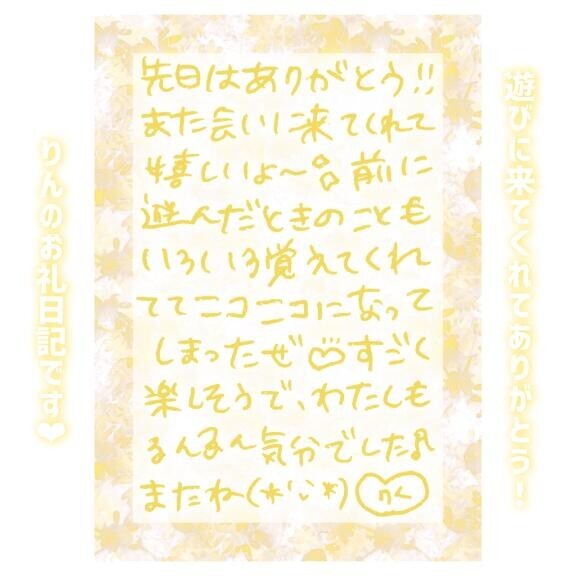 遊びに来てくれてありがとう!
先日はありがとう!!
また会いに来てくれて
嬉しいよ〜前に
遊んだときのことも
いろいろ覚えてくれ
ててニコニコになって
しまったぜ♡すごく
楽しそうで、わたしも
るんるん気分でした♬
またね(*'ω'*)
りんのお礼日記です❤